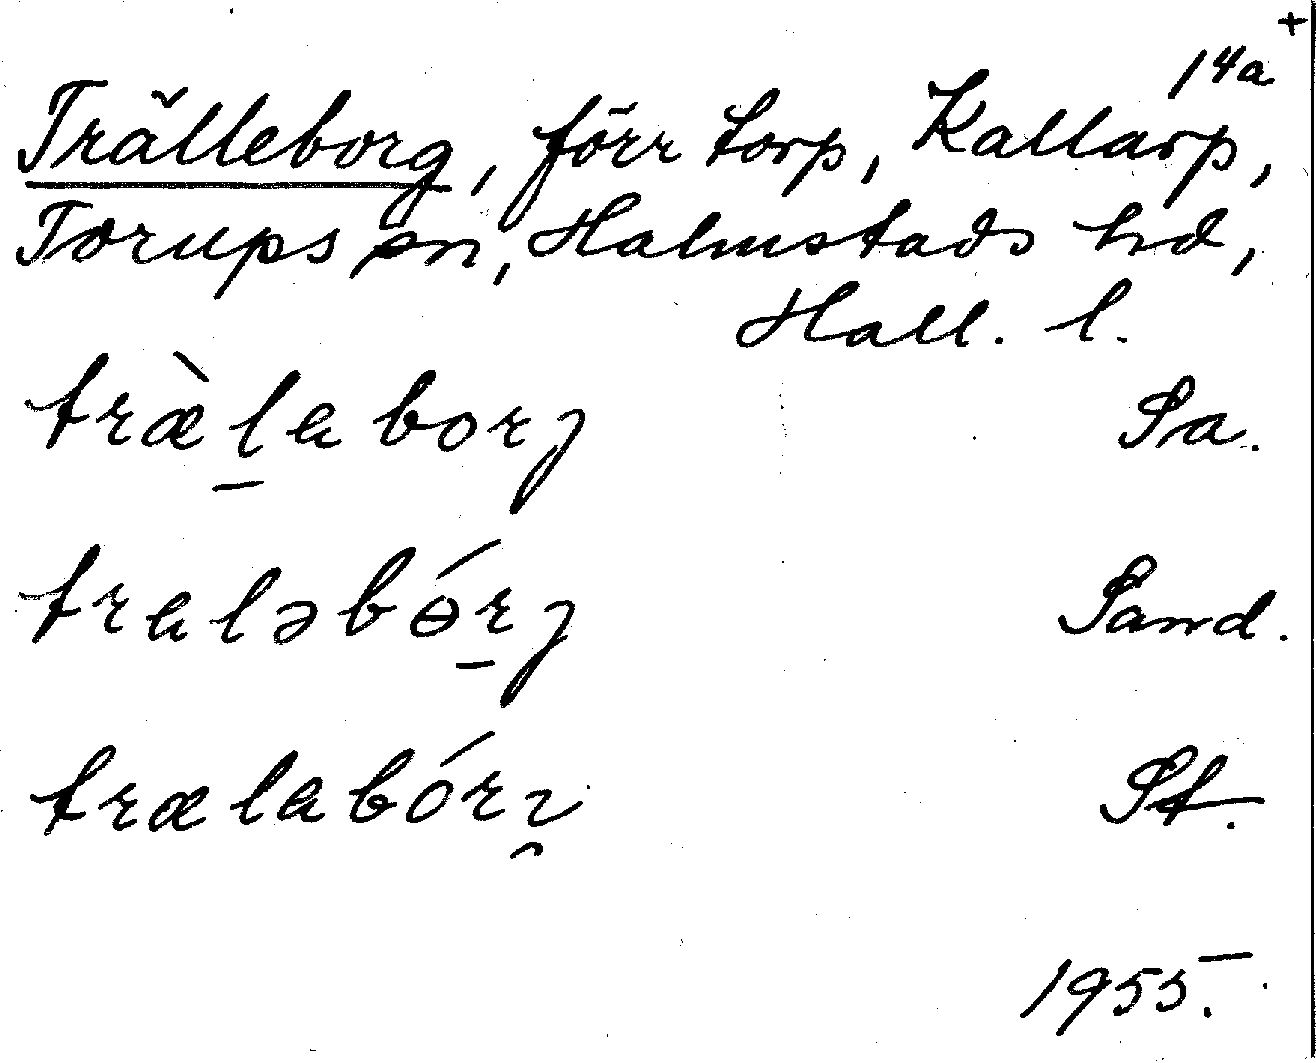 +
14a
Trälleborg, förr torp, Kallarp,
Torups sn, Halmstads hd,
Hall. l.
træ̀l̠aborȷ Sa.
tralǝbɵ́r̠ȷ Sand.
trælabórı̯ St.
1955.